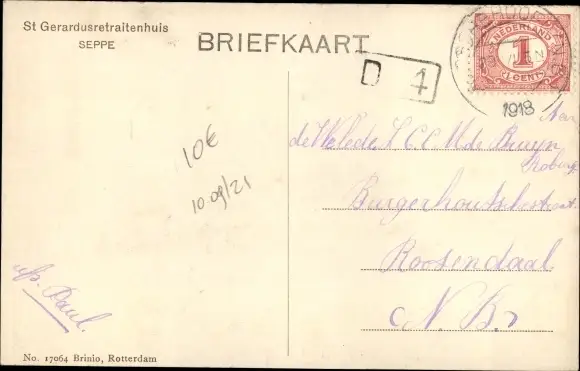 St Gerardusretraitenhuis
SEPPE
BRIEFKAART
D 4
NEDERLAND
1
1 CENT
1918
Aan
de Weled. C. C. M. de Bruyn
Burgerhoutschestraat
Roosendaal
N. B.
10€
10.09/21
Paul.
No. 17064 Brinio, Rotterdam